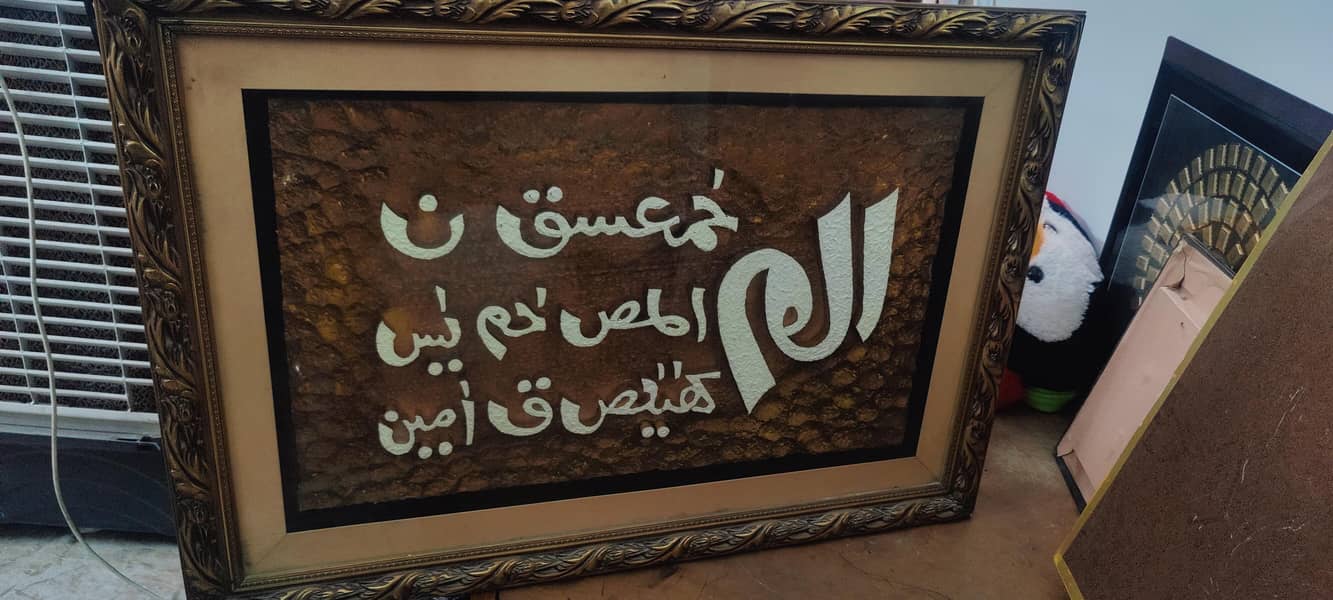 الم
حٰمعسق ن
المص حٰم يٰس
كهٰيٰعص ق اٰمين